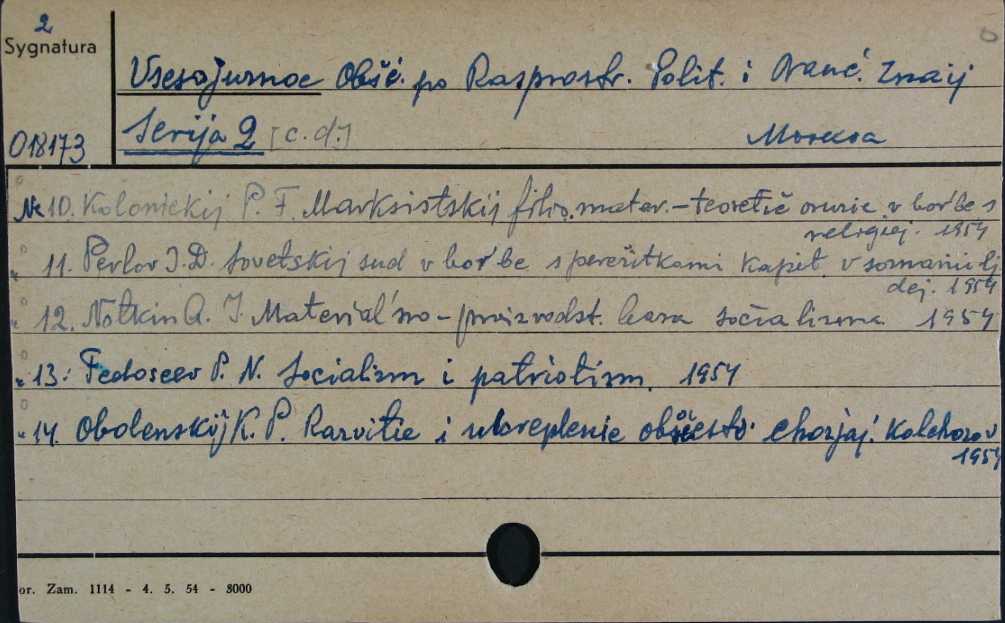 2
Sygnatura
Vsesojuznoe Obšč. po Rasprostr. Polit. i Nauč. Znaij
018173 Serija 2 [c.d.] Moskva
№ 10. Kolonickij P. F. Marksistskij filoz. mater. - teoretič oruzie v bor'be s
religiej. 1954
" 11. Pavlov I. D. Sovetskij sud v bor'be s perežitkami kapit. v soznanii lj
dej. 1954
" 12. Notkin A. I. Material'no - proizvodst. baza socializma 1954
" 13. Fedoseev P. N. Socializm i patriotizm. 1954
" 14. Obolenskij K. P. Razvitie i ukreplenie obščestv. chozjaj. Kolchozov
1954
or. Zam. 1114 - 4. 5. 54 - 8000